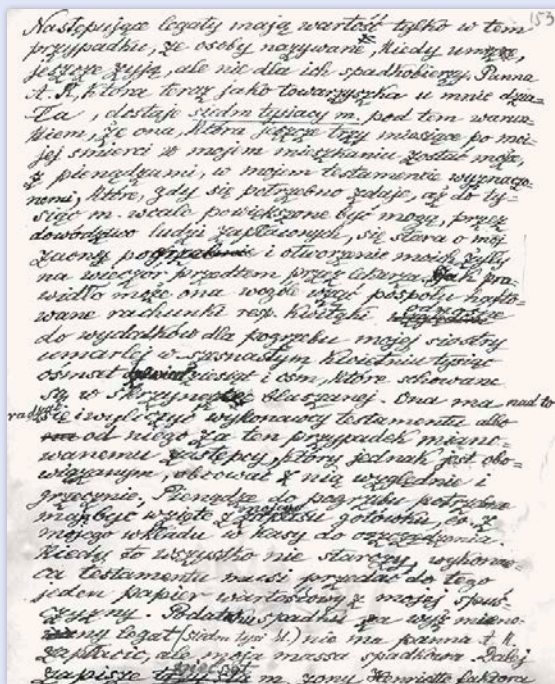 153
Następujące legaty mają wartość tylko w tem
przypadku, że osoby nazywane, kiedy umrze,
jeszcze żyją, ale nie dla ich spadkobierzy. Panna
A. K. która teraz jako towarzyszka u mnie dzia-
ła, dostaje siedm tysiacy m. pod tem warun-
kiem, że ona, która jeszcze trzy miesiące po mo-
jej śmierci w mojem mieszkaniu zostać może,
z pieniądzami, w mojem testamencie wyznaczo-
nemi, które, gdy się potrzebno zdaje, aż do ty-
siąc m. wcale powiększone być mogą, przez
dowództwo ludzi zapłaconych, się stara o mój
zacny i otworzenie moich żyły
na wieczór przedtem przez lekarza. Jak pra-
widło może ona wogóle wziąć pospołu
wane rachunki resp. kwitki
do wydatków dla pogrzebu mojej siostry
umarłej w szesnastym Kwietniu tysiąc
osmset dziesiąt i ośm, które schowane
są w skrzyneczce blaszanej. Ona ma nad to
się i wyliczyć wykonawcy testamentu albo
od niego za ten przypadek miano-
wanemu zastępcy, który jednak jest obo-
wiązanym, obcować z nią względnie i
grzecznie. Pieniądze do pogrzebu potrzebne
mają być wzięte z mojego zapasu gotówku, co z
mojego wkładu w kasy do oszczędzenia.
Kiedy to wszystko nie starczy, wykonaw-
ca testamentu musi przedać do tego
jeden papier wartościowy z mojej spuś-
czyzny. Podatku spadku za wyż miano-
wany legat (siedm tysi M.) nie ma panna A. K.
zapłacić, ale moja massa spadkowa. Dalej
zapisze m. żony Henriette faktora